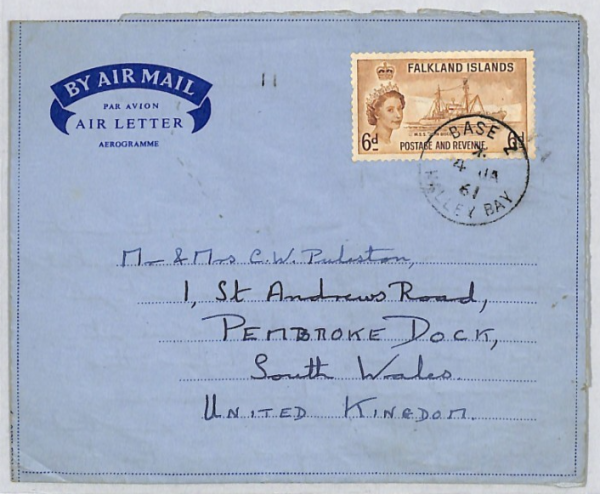 BY AIR MAIL
PAR AVION
AIR LETTER
AEROGRAMME
FALKLAND ISLANDS
6d 6d
POSTAGE AND REVENUE
BASE Z
4 JA
61
HALLEY BAY
Mr & Mrs C.W. Puleston,
1, St Andrews Road,
PEMBROKE DOCK,
South Wales.
UNITED KINGDOM.